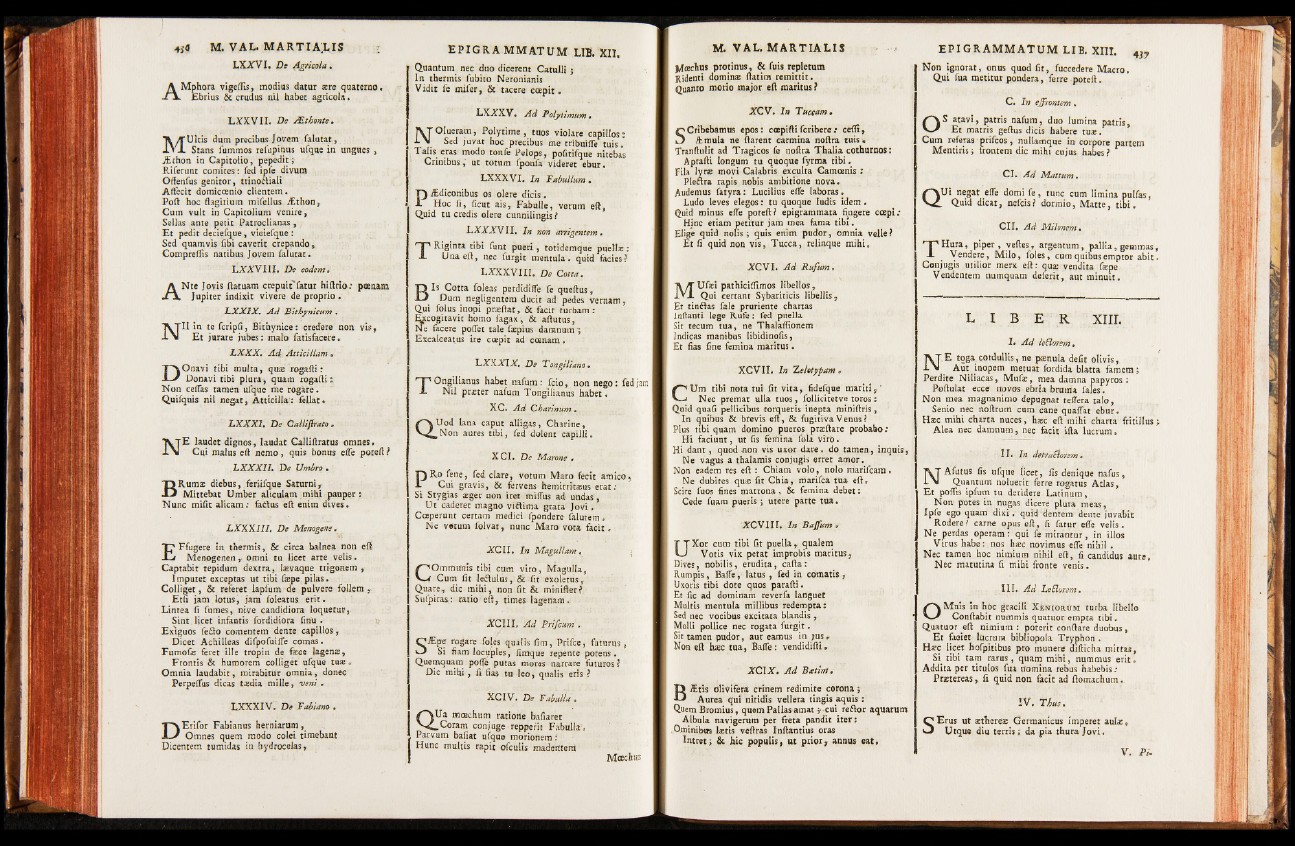 436 M. VAL. MARTIALIS
LXXVI. De Agricola.
AMphora vigeſſis, modius datur ære quaterno.
Ebrius & crudus nil habet agricola.
LXXVII. De Æthonte.
MUltis dum precibus Jovem ſalutat,
Stans ſummos reſupinus uſque in ungues,
Æthon in Capitolio, pepedit;
Riſerunt comites: ſed ipſe divum
Offenſus genitor, trinoctiali
Affecit domicœnio clientem.
Poſt hoc flagitium miſellus Æthon,
Cum vult in Capitolium venire,
Sellas ante petit Patroclianas,
Et pedit decieſque, vicieſque:
Sed quamvis ſibi caverit crepando,
Compreſſis natibus Jovem ſalutat.
LXXVIII. De eodem.
ANte Jovis ſtatuam crepuit ſatur hiſtrio: pœnam
Jupiter indixit vivere de proprio.
LXXIX. Ad Bithynicum.
NIl in te ſcripſi, Bithynice: credere non vis,
Et jurare jubes: malo ſatisfacere.
LXXX. Ad Atticillam.
DOnavi tibi multa, quæ rogaſti:
Donavi tibi plura, quam rogaſti:
Non ceſſas tamen uſque me rogare.
Quiſquis nil negat, Atticilla: fellat.
LXXXI. De Calliſtrato.
NE laudet dignos, laudat Calliſtratus omnes.
Cui malus eſt nemo, quis bonus eſſe poteſt?
LXXXII. De Umbro.
BRumæ diebus, feriiſque Saturni,
Mittebat Umber aliculam mihi pauper:
Nunc miſit alicam: factus eſt enim dives.
LXXXIII. De Menogene.
EFfugere in thermis, & circa balnea non eſt
Menogenen, omni tu licet arte velis.
Captabit tepidum dextra, lævaque trigonem,
Imputet exceptas ut tibi ſæpe pilas.
Colliget, & referet lapſum de pulvere follem,
Etſi jam lotus, jam ſoleatus erit.
Lintea ſi ſumes, nive candidiora loquetur,
Sint licet infantis ſordidiora ſinu.
Exiguos ſecto comentem dente capillos,
Dicet Achilleas diſpoſuiſſe comas.
Fumoſæ feret ille tropin de fæce lagenæ,
Frontis & humorem colliget uſque tuæ.
Omnia laudabit, mirabitur omnia, donec
Perpeſſus dicas tædia mille, veni.
LXXXIV. De Fabiano.
DEriſor Fabianus herniarum,
Omnes quem modo colei timebant
Dicentem tumidas in hydrocelas,
EPIGRAMMATUM LIB. XII.
Quantum nec duo dicerent Catulli;
In thermis ſubito Neronianis
Vidit ſe miſer, & tacere cœpit.
LXXXV. Ad Polytimum.
NOlueram, Polytime, tuos violare capillos:
Sed juvat hoc precibus me tribuiſſe tuis.
Talis eras modo tonſe Pelops, poſitiſque nitebas
Crinibus, ut totum ſponſa videret ebur.
LXXXVI. In Fabullum.
PÆdiconibus os olere dicis.
Hoc ſi, ſicut ais, Fabulle, verum eſt,
Quid tu credis olere cunnilingis?
LXXXVII. In non arrigentem.
TRiginta tibi ſunt pueri, totidemque puellæ:
Una eſt, nec ſurgit mentula. quid facies?
LXXXVIII. De Cotta.
BIs Cotta ſoleas perdidiſſe ſe queſtus,
Dum negligentem ducit ad pedes vernam,
Qui ſolus inopi præſtat, & facit turbam:
Excogitavit homo ſagax, & aſtutus,
Ne facere poſſet tale ſæpius damnum;
Excalceatus ire cœpit ad cœnam.
LXXXIX. De Tongiliano.
TOngilianus habet naſum: ſcio, non nego: ſed jam
Nil præter naſum Tongilianus habet.
XC. Ad Charinum.
QUod lana caput alligas, Charine,
Non aures tibi, ſed dolent capilli.
XCI. De Marone.
PRo ſene, ſed clare, votum Maro fecit amico,
Cui gravis, & fervens hemitritæus erat:
Si Stygias æger non iret miſſus ad undas,
Ut caderet magno victima grata Jovi.
Cœperunt certam medici ſpondere ſalutem.
Ne votum ſolvat, nunc Maro vota facit.
XCII. In Magullam.
COmmunis tibi cum viro, Magulla,
Cum ſit lectulus, & ſit exoletus,
Quare, dic mihi, non ſit & miniſter?
Suſpiras: ratio eſt, times lagenam.
XCIII. Ad Priſcum.
SÆpe rogare ſoles qualis ſim, Priſce, futurus,
Si fiam locuples, ſimque repente potens.
Quemquam poſſe putas mores narrare futuros?
Dic mihi, ſi fias tu leo, qualis eris?
XCIV. De Fabulla.
QUa mœchum ratione baſiaret
Coram conjuge repperit Fabulla.
Parvum baſiat uſque morionem:
Hunc multis rapit oſculis madentem
Mœchus
M. VAL. MARTIALIS
Mœchus protinus, & ſuis repletum
Ridenti dominæ ſtatim remittit.
Quanto morio major eſt maritus?
XCV. In Tuccam.
SCribebamus epos: cœpiſti ſcribere: ceſſi,
Æmula ne ſtarent carmina noſtra tuis.
Tranſtulit ad Tragicos ſe noſtra Thalia cothurnos:
Aptaſti longum tu quoque ſyrma tibi.
Fila lyræ movi Calabris exculta Camœnis:
Plectra rapis nobis ambitione nova.
Audemus ſatyra: Lucilius eſſe laboras.
Ludo leves elegos: tu quoque ludis idem.
Quid minus eſſe poteſt? epigrammata fingere cœpi:
Hinc etiam petitur jam mea fama tibi.
Elige quid nolis; quis enim pudor, omnia velle?
Et ſi quid non vis, Tucca, relinque mihi.
XCVI. Ad Rufum.
MUſæi pathiciſſimos libellos,
Qui certant Sybariticis libellis,
Et tinctas ſale pruriente chartas
Inſtanti lege Rufe: ſed puella
Sit tecum tua, ne Thalaſſionem
Indicas manibus libidinoſis,
Et fias ſine femina maritus.
XCVII. In Zelotypam.
CUm tibi nota tui ſit vita, fideſque mariti,
Nec premat ulla tuos, ſollicitetve toros:
Quid quaſi pellicibus torqueris inepta miniſtris,
In quibus & brevis eſt, & fugitiva Venus?
Plus tibi quam domino pueros præſtare probabo:
Hi faciunt, ut ſis femina ſola viro.
Hi dant, quod non vis uxor dare. do tamen, inquis,
Ne vagus a thalamis conjugis erret amor.
Non eadem res eſt: Chiam volo, nolo mariſcam.
Ne dubites quæ ſit Chia, mariſca tua eſt.
Scire ſuos fines matrona, & femina debet:
Cede ſuam pueris; utere parte tua.
XCVIII. In Baſſum.
UXor cum tibi ſit puella, qualem
Votis vix petat improbis maritus,
Dives, nobilis, erudita, caſta:
Rumpis, Baſſe, latus, ſed in comatis,
Uxoris tibi dote quos paraſti.
Et ſic ad dominam reverſa languet
Multis mentula millibus redempta:
Sed nec vocibus excitata blandis,
Molli pollice nec rogata ſurgit.
Sit tamen pudor, aut eamus in jus.
Non eſt hæc tua, Baſſe: vendidiſti.
XCIX. Ad Bætim.
BÆtis olivifera crinem redimite corona;
Aurea qui nitidis vellera tingis aquis:
Quem Bromius, quem Pallas amat; cui rector aquarum
Albula navigerum per freta pandit iter:
Ominibus lætis veſtras Inſtantius oras
Intret; & hic populis, ut prior, annus eat.
EPIGRAMMATUM LIB. XIII. 437
Non ignorat, onus quod ſit, ſuccedere Macro.
Qui ſua metitur pondera, ferre poteſt.
C. In effrontem.
OS atavi, patris naſum, duo lumina patris,
Et matris geſtus dicis habere tuæ.
Cum referas priſcos, nullamque in corpore partem
Mentiris; frontem dic mihi cujus habes?
CI. Ad Mattum.
QUi negat eſſe domi ſe, tunc cum limina pulſas,
Quid dicat, neſcis? dormio, Matte, tibi.
CII. Ad Milonem.
THura, piper, veſtes, argentum, pallia, gemmas,
Vendere, Milo, ſoles, cum quibus emptor abit.
Conjugis utilior merx eſt: quæ vendita ſæpe
Vendentem numquam deſerit, aut minuit.
LIBER XIII.
I. Ad lectorem.
NE toga cordullis, ne pænula deſit olivis,
Aut inopem metuat ſordida blatta famem;
Perdite Niliacas, Muſæ, mea damna papyros:
Poſtulat ecce novos ebria bruma ſales.
Non mea magnanimo depugnat teſſera talo,
Senio nec noſtrum cum cane quaſſat ebur.
Hæc mihi charta nuces, hæc eſt mihi charta fritillus:
Alea nec damnum, nec facit iſta lucrum.
II. In detractorem.
NAſutus ſis uſque licet, ſis denique naſus,
Quantum noluerit ferre rogatus Atlas,
Et poſſis ipſum tu deridere Latinum,
Non potes in nugas dicere plura meas,
Ipſe ego quam dixi. quid dentem dente juvabit
Rodere? carne opus eſt, ſi ſatur eſſe velis.
Ne perdas operam: qui ſe mirantur, in illos
Virus habe: nos hæc novimus eſſe nihil.
Nec tamen hoc nimium nihil eſt, ſi candidus aure,
Nec matutina ſi mihi fronte venis.
III. Ad Lectorem.
OMnis in hoc gracili XENIORUM turba libello
Conſtabit nummis quatuor empta tibi.
Quatuor eſt nimium: poterit conſtare duobus,
Et faciet lucrum bibliopola Tryphon.
Hæc licet hoſpitibus pro munere diſticha mittas,
Si tibi tam rarus, quam mihi, nummus erit.
Addita per titulos ſua nomina rebus habebis:
Prætereas, ſi quid non facit ad ſtomachum.
IV. Thus.
SErus ut æthereæ Germanicus imperet aulæ,
Utque diu terris; da pia thura Jovi.
V. Pi-